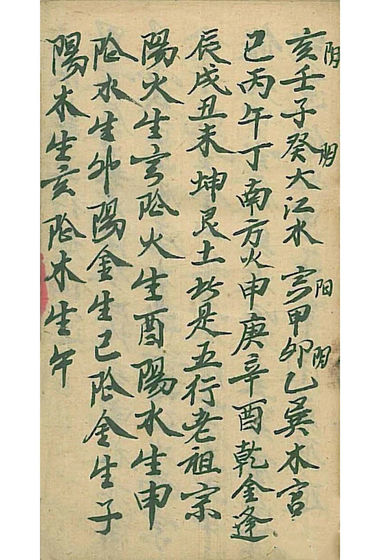 亥壬子癸大江水 寅甲卯乙巽木宫
阴 阳 阳 阴
巳丙午丁南方火申庚辛酉乾金逢
辰戌丑未坤艮土此是五行老祖宗
陽火生寅阴火生酉陽水生申
阴水生卯陽金生巳阴金生子
陽木生亥阴木生午